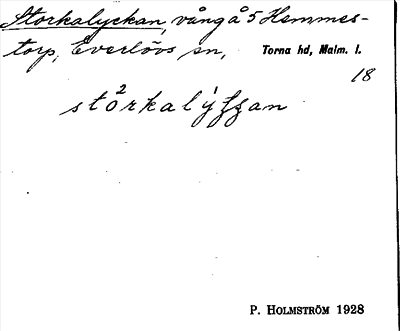 Storkalyckan, vång å 5 Hemmes-
torp, Everlövs sn, Torna hd, Malm. l.
18
P. HOLMSTRÖM 1928